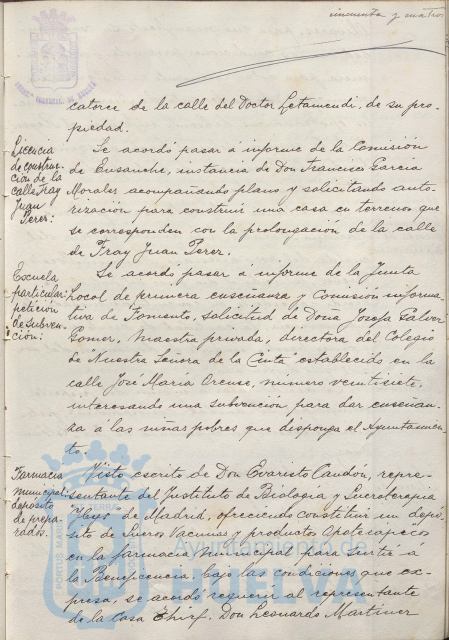 cincuenta y cuatro
catorce de la calle del Doctor Letamendi, de su pro-
piedad.
Licencia
de construc-
ción de la
calle Fray
Juan
Perez:
Se acordó pasar á informe de la Comisión
de Ensanche, instancia de Don Francisco Garcia
Morales acompañando plano y solicitando auto-
rización para construir una casa en terrenos que
se corresponden con la prolongación de la calle
de Fray Juan Perez.
Escuela
particular:
petición
de subven-
ción:
Se acordó pasar á informe de la Junta
Local de primera enseñanza y Comisión informa-
tiva de Fomento, solicitud de Doña Josefa
Gomer, Maestra privada, directora del Colegio
de "Nuestra Señora de la Cinta" establecido en la
calle José Maria número veintisiete,
interesando una subvención para dar enseñan-
za á las niñas pobres que disponga el Ayuntamien-
to.
Farmacia
municipal:
depósito
de prepa-
rados.
Visto escrito de Don Evaristo repre-
sentante del Instituto de Biologia y Sueroterapia
de Madrid, ofreciendo constituir un depó-
sito de Sueros Vacunas y producto
en la farmacia Municipal para surtir á
la Beneficencia, bajo las condiciones que ex-
presa, se acordó requerir al representante
de la Casa Don Leonardo Martinez
Ayuntamiento de
HUELVA